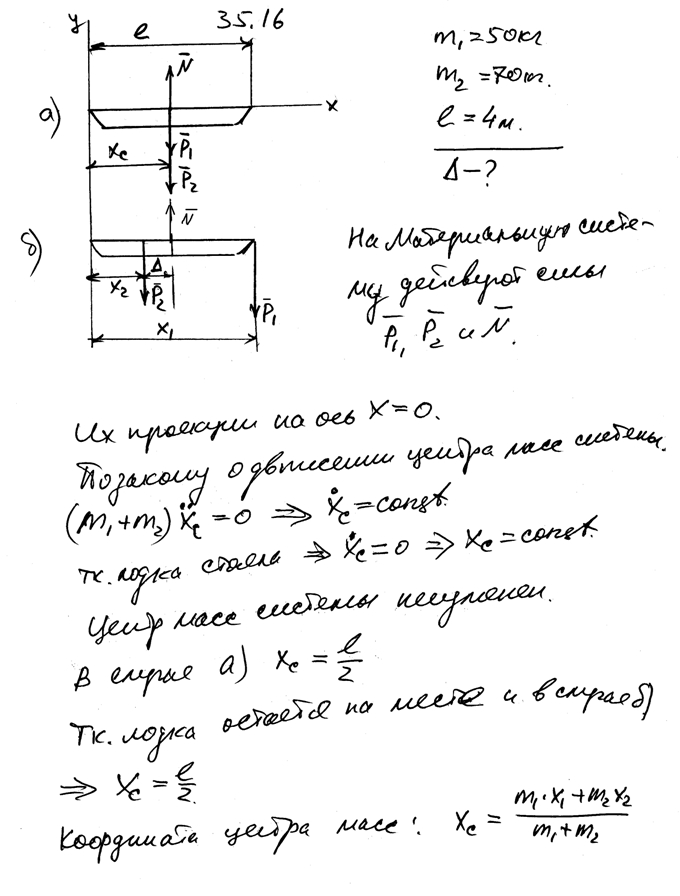 35.16
y
l
N̅
а)
x
P̅₁
xc
P̅₂
N̅
б)
Δ
x₂
P̅₂
P̅₁
x₁
m₁=50кг
m₂=70кг.
l=4м.
Δ-?
На материальную систе-
му действуют силы
P̅₁, P̅₂ и N̅.
Их проекции на ось X=0.
По закону о движении центра масс системы.
(m₁+m₂)ẍc=0 ⇒ ẋc=const.
тк. лодка стояла ⇒ ẋc=0 ⇒ xc=const.
Центр масс системы неизменен.
В случае а) xc = l/2
Тк. лодка остается на месте и в случае б)
⇒ xc = l/2.
Координата центра масс: xc = (m₁·x₁+m₂x₂)/(m₁+m₂)